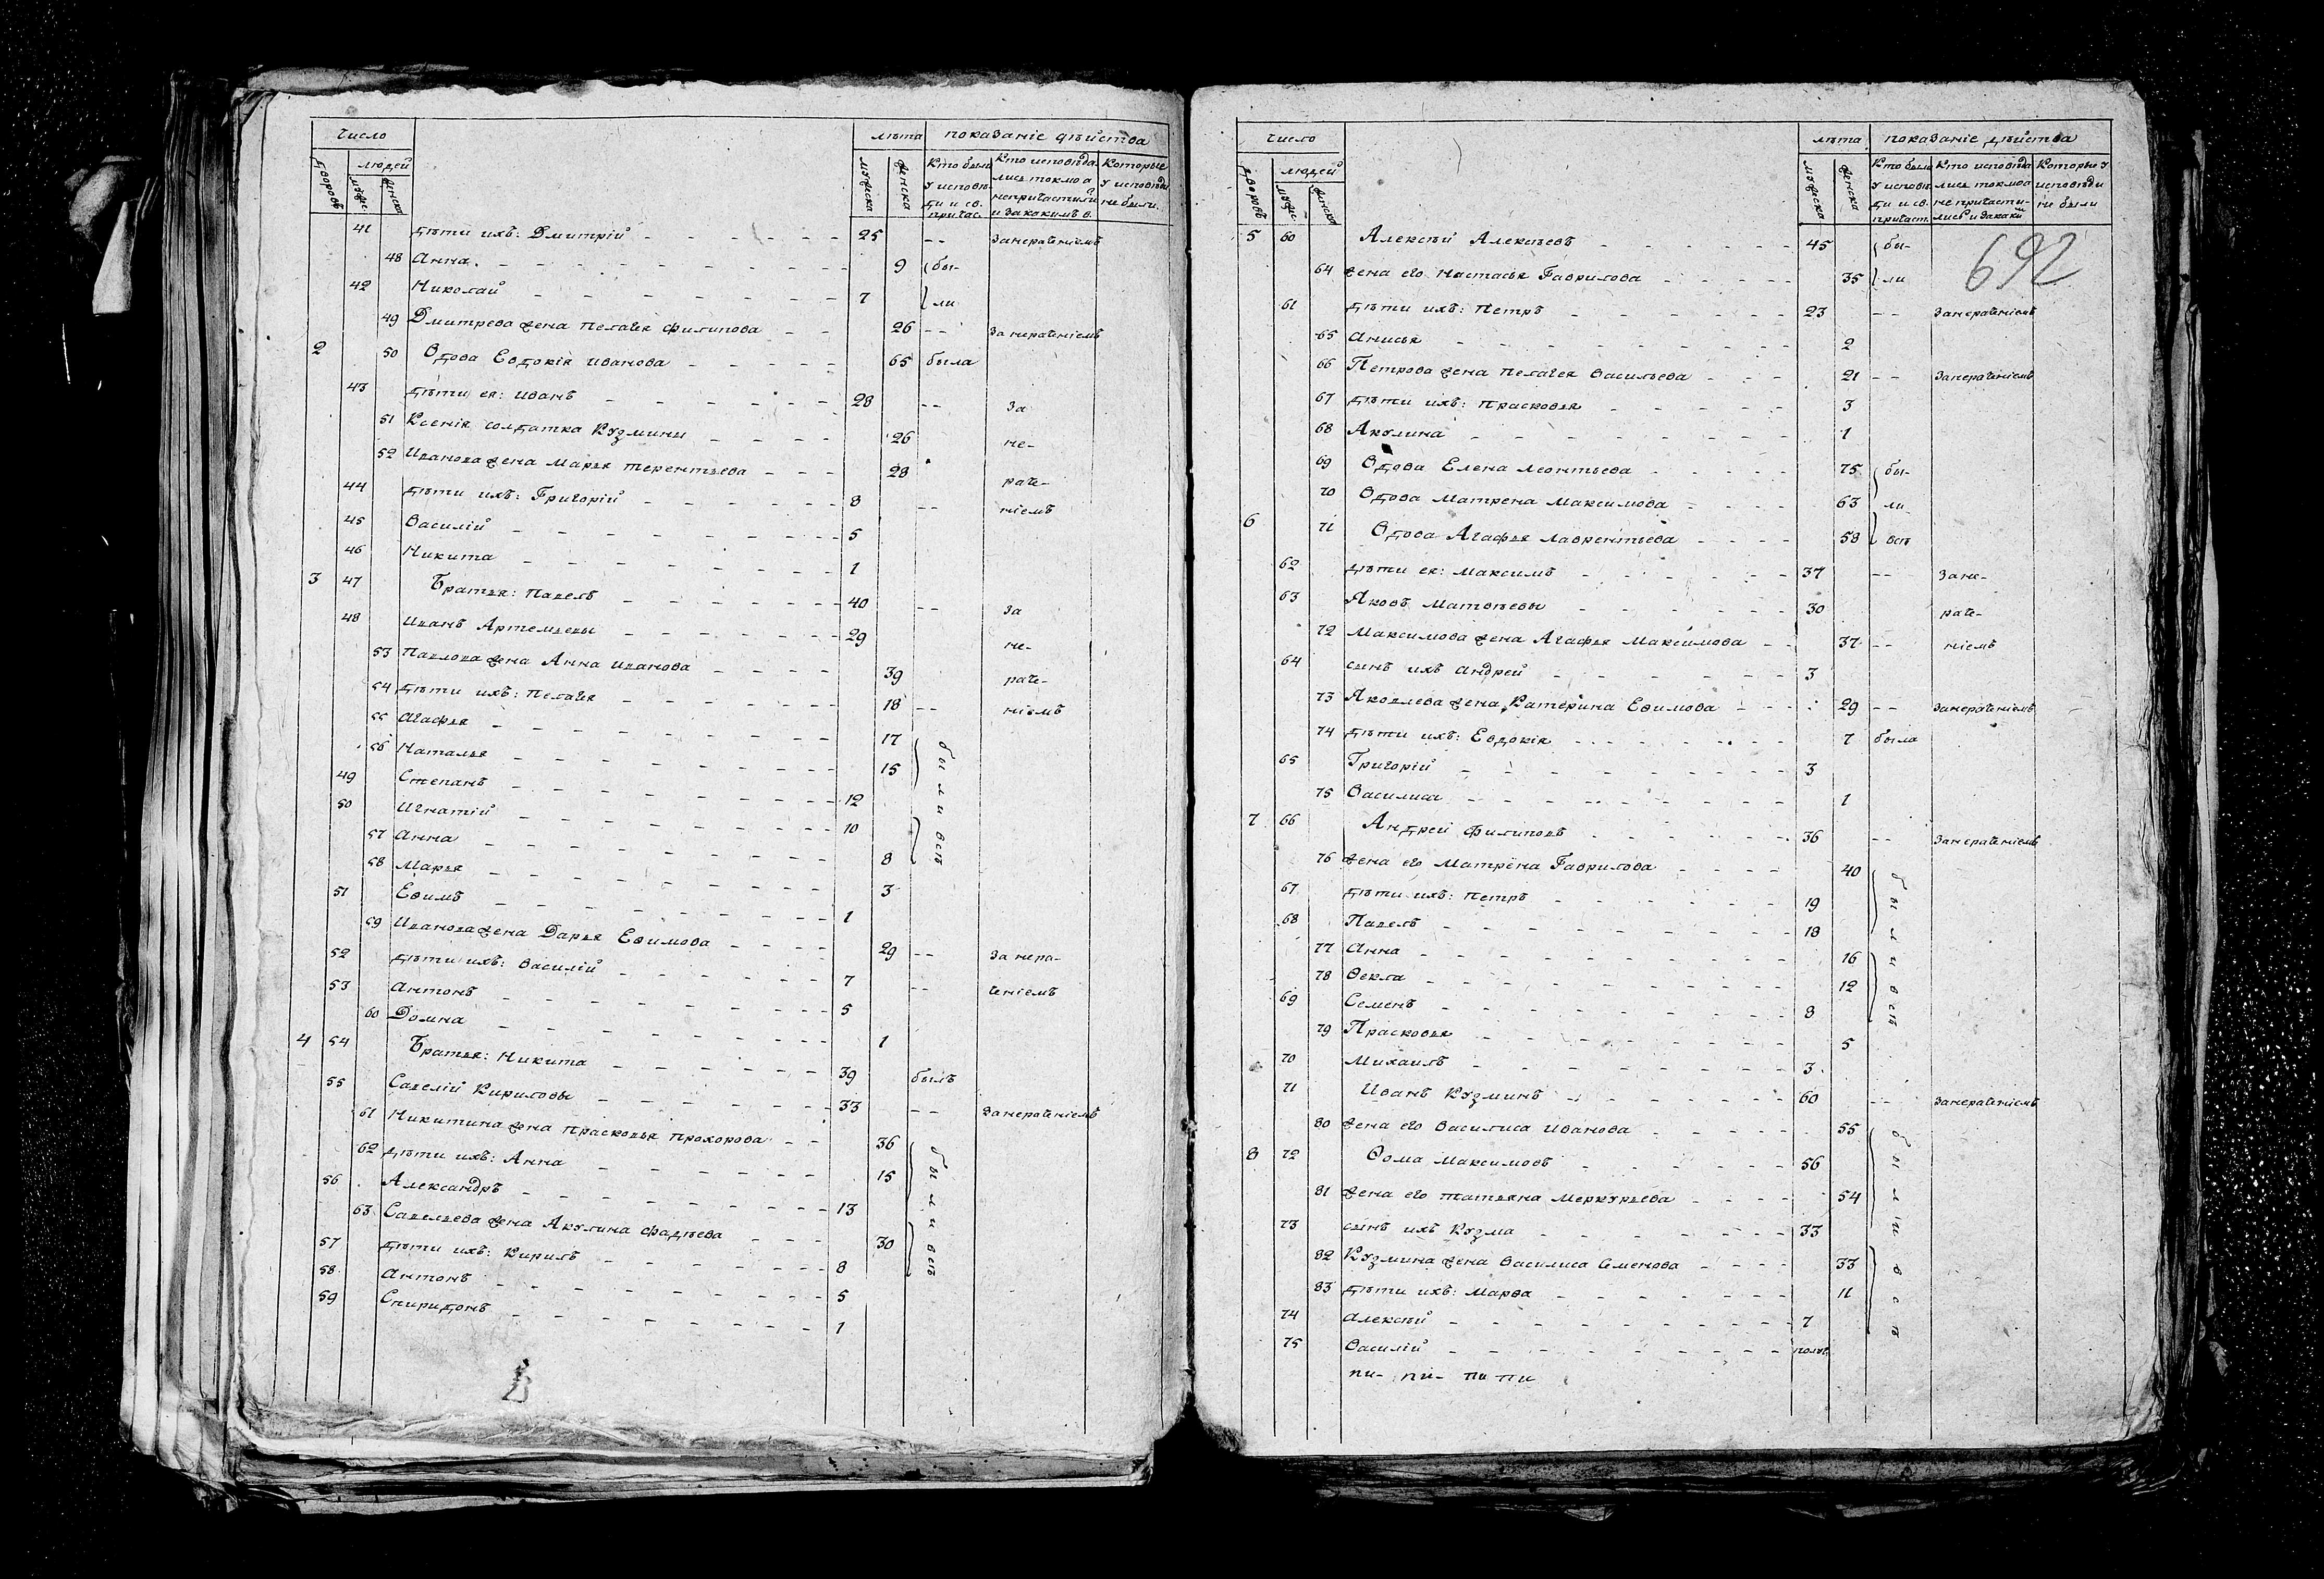 число лѣта показаніе дѣйства
дворовъ людей мужеска женска Кто были у исповѣди и св. причас. Кто исповѣдались токмо а непричастили и закакимъ в. Которые у исповѣди не были.
41 дѣти ихъ: Дмитрій 25 -- занераченіемъ
48 Анна 9 бы-
42 Николай 7 ли
49 Дмитрева жена Пелагея Филипова 26 -- занераченіемъ
2 50 Вдова Евдокія Иванова 65 была
43 дѣти ея: Иванъ 28 -- за
51 Ксенія солдатка Кузмины 26 не-
52 Иванова жена Марья Терентьева 28 раче-
44 дѣти ихъ: Григорій 8 -- ніемъ
45 Василій 5
46 Никита 1
3 47 Братья: Павелъ 40 -- за
48 Иванъ Артемьевы 29 не-
53 Павлова жена Анна Иванова 39 раче-
54 дѣти ихъ: Пелагея 18 -- ніемъ
55 Агафья 17
56 Наталья 15
49 Степанъ 12
50 Игнатій 10
57 Анна 8
были всѣ
58 Марья 3
51 Ефимъ 1
59 Иванова жена Дарья Ефимова 29 -- за нера-
52 дѣти ихъ: Василій 7 -- ченіемъ
53 Антонъ 5
60 Домна 1
4 54 Братья: Никита 39 былъ
55 Савелій Кириловы 33 -- занераченіемъ
61 Никитина жена Прасковья Прохорова 36
62 дѣти ихъ: Анна 15
56 Александръ 13
63 Савельева жена Акулина Фадѣева 30
57 дѣти ихъ: Кирилъ 8
были всѣ
58 Антонъ 5
59 Спиридонъ 1
число лѣта показаніе дѣйства
дворовъ людей мужес. женска мужеска женска Кто были у исповѣди и св. причаст. Кто исповѣдались токмоа не причастились и закаки Которые у исповѣди не были
692
5 60 Алексѣй Алексѣевъ 45 бы-
64 жена его Настасья Гаврилова 35 ли
61 дѣти ихъ: Петръ 23 -- занераченіемъ
65 Анисья 2
66 Петрова жена Пелагея Васильева 21 -- занераченіемъ
67 дѣти ихъ: Прасковья 3
68 Акулина 1
69 Вдова Елена Леонтьева 75 бы-
70 Вдова Матрена Максимова 63 ли
6 71 Вдова Агафья Лаврентьева 58 всѣ
62 дѣти ея: Максимъ 37 -- зане-
63 Яковъ Матвѣевы 30 раче-
72 Максимова жена Агафья Максимова 37 -- ніемъ
64 сынъ ихъ Андрей 3
73 Яковлева жена Катерина Ефимова 29 -- занераченіемъ
74 дѣти ихъ: Евдокія 7 была
65 Григорій 3
75 Василиса 1
7 66 Андрей Филиповъ 36 -- занераченіемъ
76 жена его Матрена Гаврилова 40
67 дѣти ихъ: Петръ 19
68 Павелъ 18
77 Анна 16
78 Ѳекла 12
69 Семенъ 8
были всѣ
79 Прасковья 5
70 Михаилъ 3
71 Иванъ Кузминъ 60 -- занераченіемъ
80 жена его Василиса Иванова 55
8 72 Ѳома Максимовъ 56
81 жена его Татьяна Меркурьева 54
73 сынъ ихъ Кузма 33
82 Кузмина жена Василиса Семенова 33
83 дѣти ихъ: Марѳа 11
74 Алексѣй 7
были всѣ
75 Василій полуг.
пи- пи- пи пи